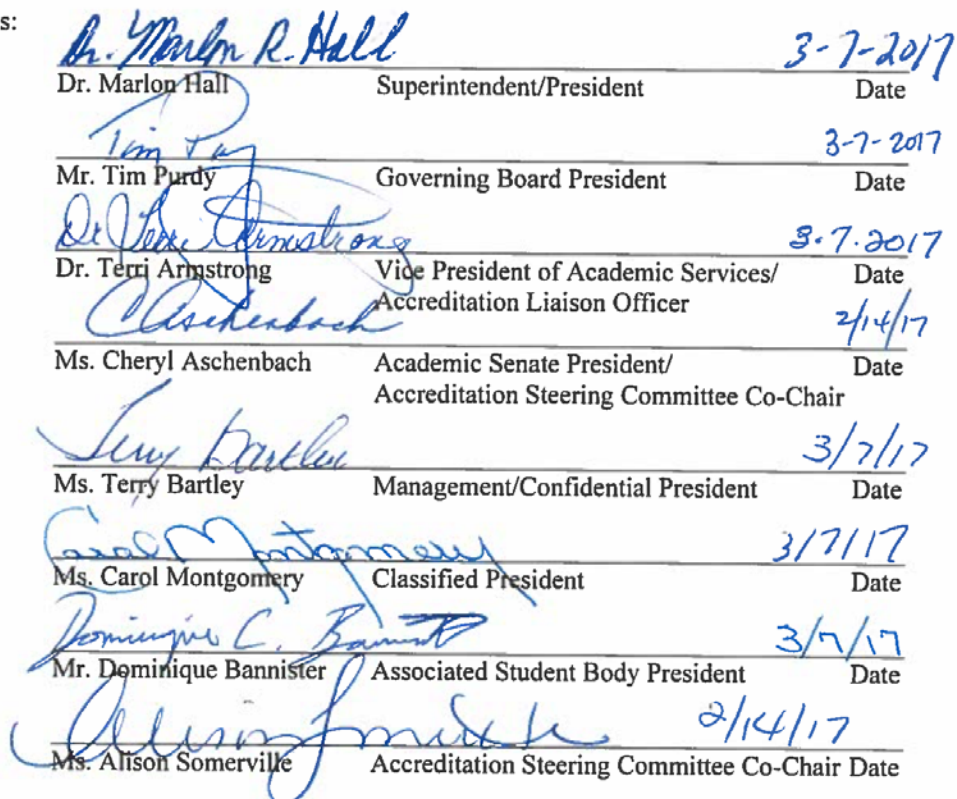 s:
Dr. Marlon R. Hall 3-7-2017
Dr. Marlon Hall Superintendent/President Date
Tim 3-7-2017
Mr. Tim Purdy Governing Board President Date
Dr Terri Armstrong 3.7.2017
Dr. Terri Armstrong Vice President of Academic Services/ Date
Accreditation Liaison Officer
CAschenbach 2/14/17
Ms. Cheryl Aschenbach Academic Senate President/ Date
Accreditation Steering Committee Co-Chair
Terry Bartley 3/7/17
Ms. Terry Bartley Management/Confidential President Date
Carol Montgomery 3/7/17
Ms. Carol Montgomery Classified President Date
Dominique C. 3/7/17
Mr. Dominique Bannister Associated Student Body President Date
2/14/17
Ms. Alison Somerville Accreditation Steering Committee Co-Chair Date